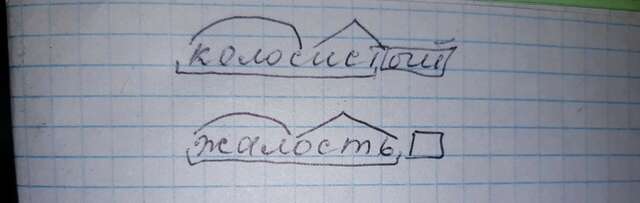 колосистый
жалость